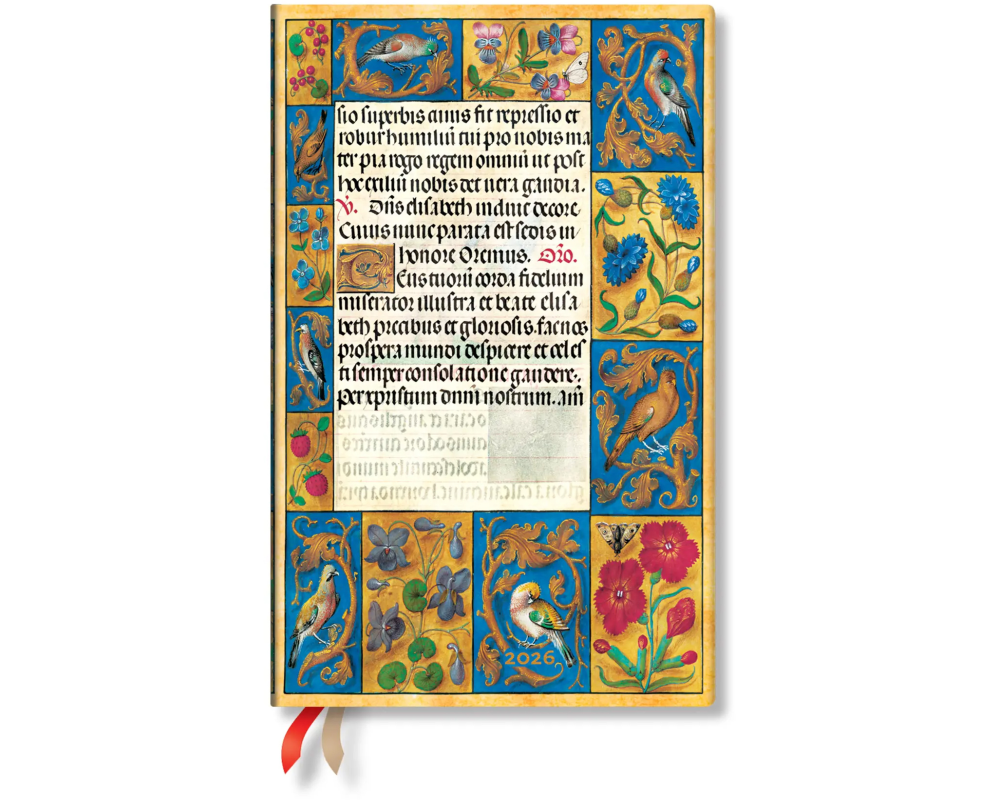 sio superbis cuius fit repressio et
robur humiliū tui pro nobis ma
ter pia rogo regem omniū ut post
hoc exiliū nobis det uera gaudia.
V. Dn̄s elisabeth induit decore
Cuius nunc parata est sedis in
honore Oremus. Oro.
Eus tuorū corda fidelium
miserator illustra et beate elisa
beth precibus et gloriosis. fac nos
prospera mundi despicere et celes
ti semper consolatione gaudere.
Per xpristum dnm̄ nostrum. am̄
2026